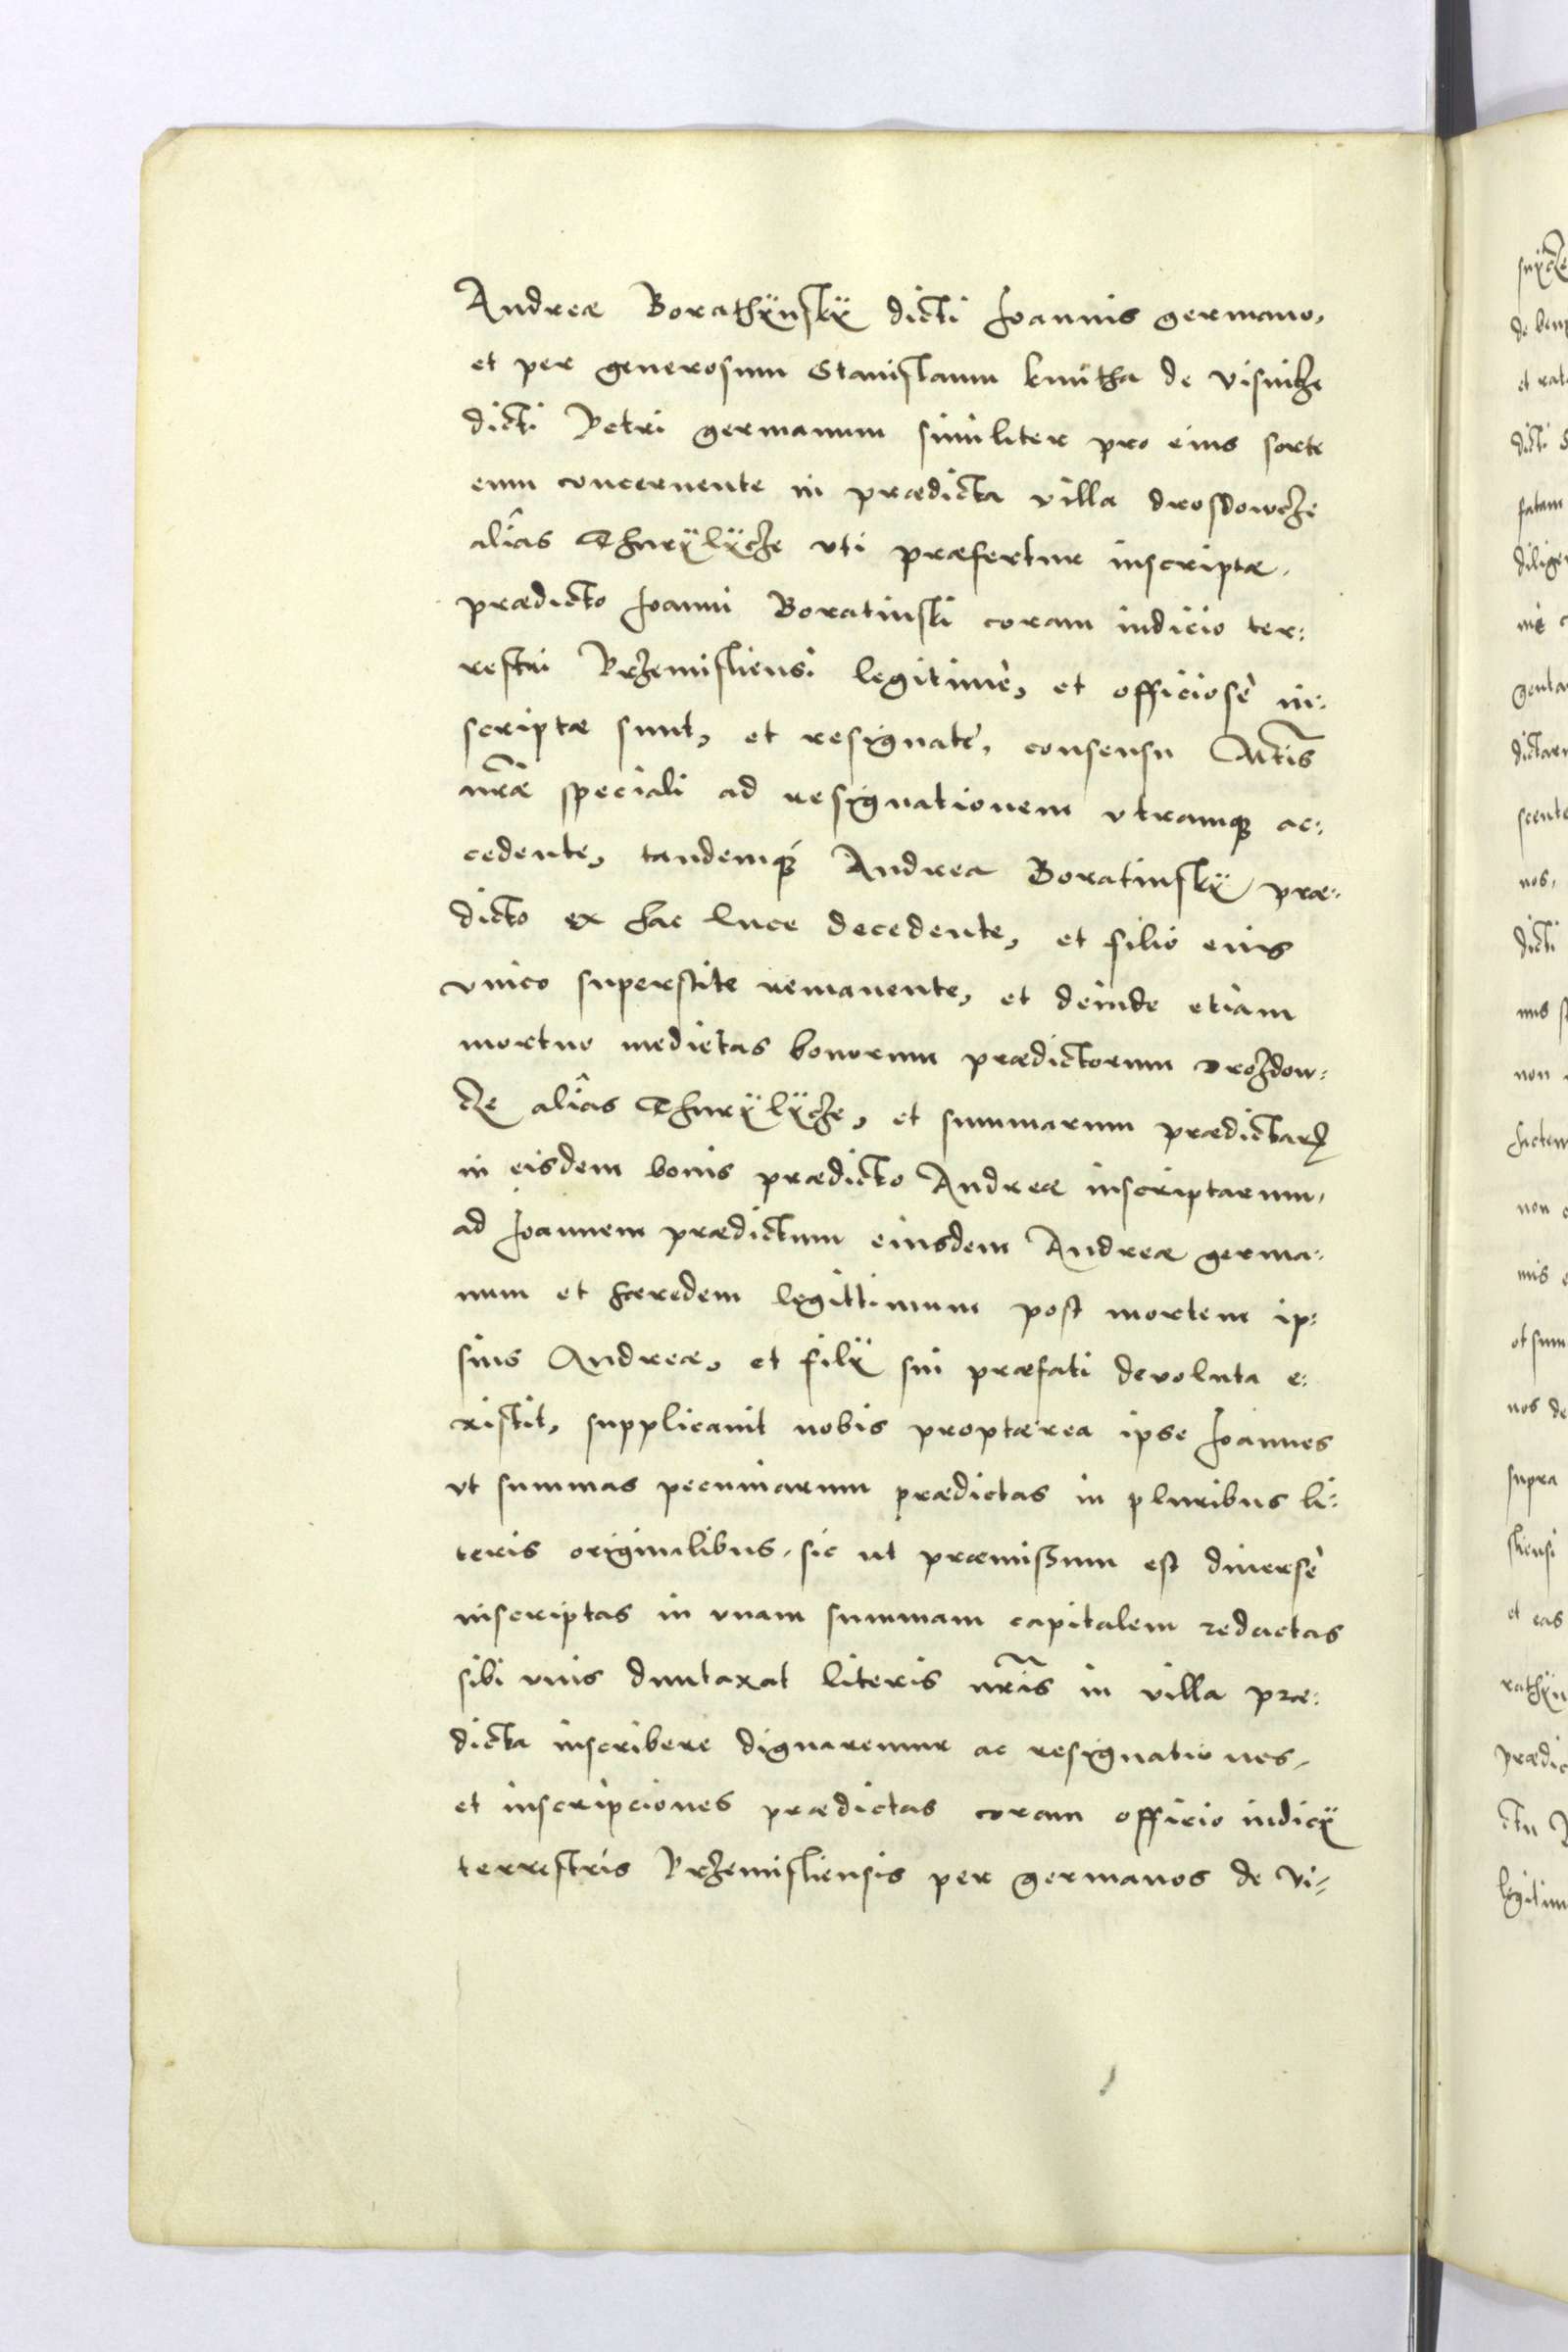 Andreæ Borathÿnskÿ dicti Joannis germano,
et per generosum Stanislaum kmitha de Visnicze
dicti Petri germanum similiter pro eius sorte
eum concernente in prædicta villa drosdowcze
aliâs Thurÿlÿcze vti præfertur inscriptæ,
prædicto Joanni Boratinski coram iudicio ter:
restri Przemisliensi legitimè, et officiosè in:
scriptæ sunt, et resignatæ, consensu Mtis
nræ speciali ad resignationem vtramq; ac:
cedente, tandemq; Andrea Boratinskÿ præ:
dicto ex hac luce decedente, et filio eius
vnico superstite remanente, et deinde etiam
mortuo medietas bonorum prædictorum drozdow:
cze aliâs Thurÿlÿcze, et summarum prædictarum
in eisdem bonis prædicto Andreæ inscriptarum,
ad Joannem prædictum eiusdem Andreæ germa:
num et hæredem legittimum post mortem ip:
sius Andreæ, et filÿ sui præfati devoluta e:
xistit, supplicauit nobis proptærea ipse Joannes
vt summas pecuniarum prædictas in pluribus li:
teris originalibus, sic ut præmissum est diuersè
inscriptas in vnam summam capitalem redactas
sibi vnis duntaxat literis nris in villa præ:
dicta inscribere dignaremur ac resignationes,
et inscripciones prædictas coram officio iudicÿ
terrestris Przemisliensis per germanos de Vi: